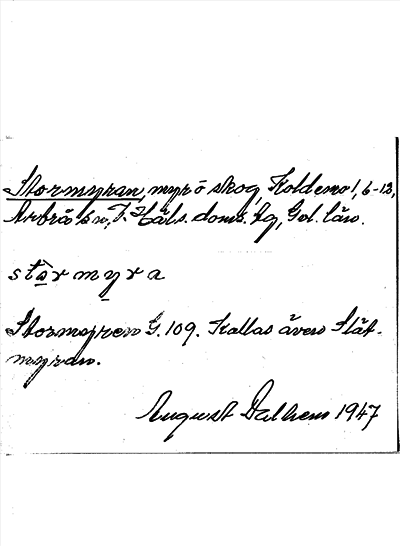 Stormyran, myr o skog, Koldemo 1, 6-13,
Arbrå sn, V. Häls. doms. hg, Gvl. län.
stårmyra
Stormyren G. 109. Kallas även Slåt-
myran.
August Dalhem 1947